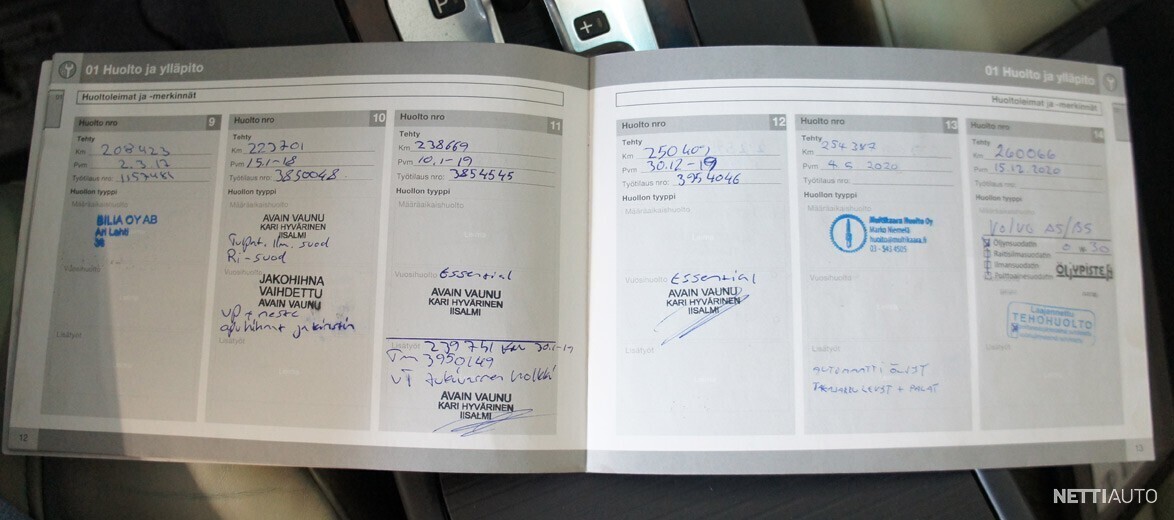 P
+
01 Huolto ja ylläpito
Huoltoleimat ja -merkinnät
Huolto nro 9
Tehty
Km 208423
Pvm 2.3.17
Työtilaus nro: 1157481
Huollon tyyppi
Määräaikaishuolto
BILIA OY AB
Ari Lahti
Vuosihuolto
Lisätyöt
Huolto nro 10
Tehty
Km 223701
Pvm 15.1-18
Työtilaus nro: 3850048
Huollon tyyppi
Määräaikaishuolto
AVAIN VAUNU
KARI HYVÄRINEN
IISALMI
suod
Ri-suod
Vuosihuolto
JAKOHIHNA
VAIHDETTU
AVAIN VAUNU
vp + neste
apuhihnat ja kiristin
Lisätyöt
Huolto nro 11
Tehty
Km 238669
Pvm 10.1-19
Työtilaus nro: 3854545
Huollon tyyppi
Määräaikaishuolto
Vuosihuolto Essential
AVAIN VAUNU
KARI HYVÄRINEN
IISALMI
Lisätyöt 239751 km 30.1-19
Tm 3950149
VT tukivarren holkki
AVAIN VAUNU
KARI HYVÄRINEN
IISALMI
12
01 Huolto ja ylläpito
Huoltoleimat ja -merkinnät
Huolto nro 12
Tehty
Km
Pvm 30.12-19
Työtilaus nro: 3954046
Huollon tyyppi
Määräaikaishuolto
Vuosihuolto Essential
AVAIN VAUNU
KARI HYVÄRINEN
IISALMI
Lisätyöt
Huolto nro 13
Tehty
Km 254387
Pvm 4.5 2020
Työtilaus nro:
Huollon tyyppi
Määräaikaishuolto
Multikaara Huolto Oy
Marko Niemelä
huolto@multikaara.fi
Vuosihuolto
Lisätyöt
AUTOMAATTI ÖLJYT
+ PALAT
Huolto nro 14
Tehty
Km 260066
Pvm 15.12 2020
Työtilaus nro:
Huollon tyyppi
Määräaikaishuolto
VOLVO A5/B5
Öljynsuodatin 0w30
Raitisilmasuodatin
Ilmansuodatin
Polttoainesuodatin
ÖLJYPISTE
Laajennettu
TEHOHUOLTO
Lisätyöt
13
NETTIAUTO